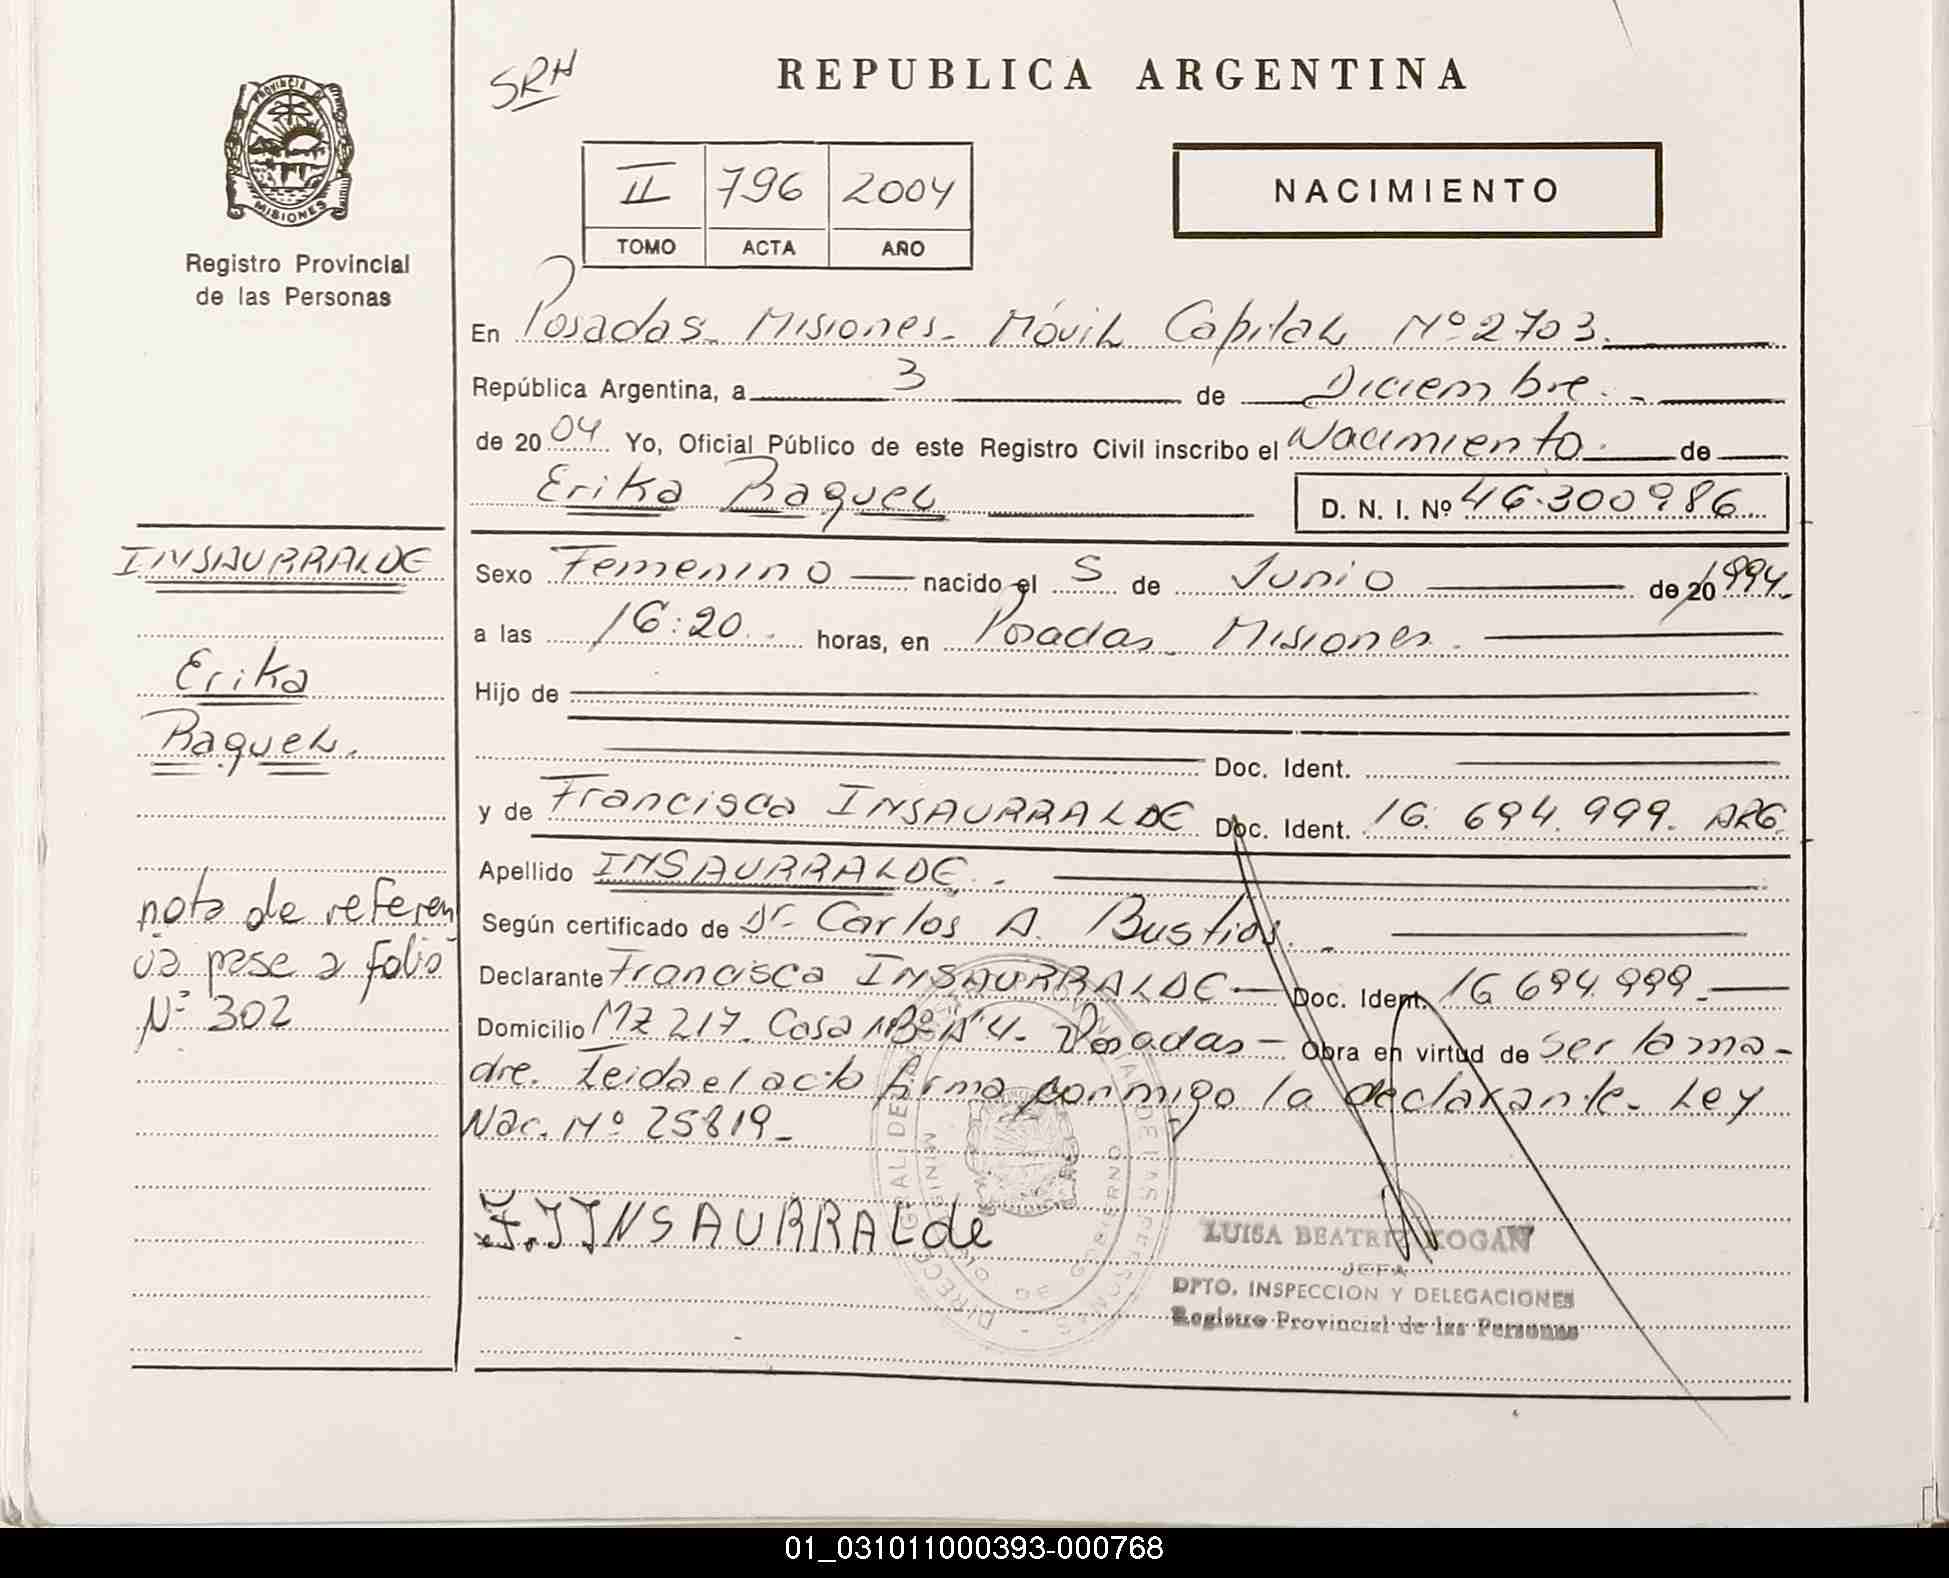 SRH
REPUBLICA ARGENTINA
PROVINCIA DE
MISIONES
Registro Provincial
de las Personas
II 796 2004
TOMO ACTA AÑO
NACIMIENTO
En Posadas. Misiones. Móvil Capital Nº 2703.
República Argentina, a 3 de Diciembre.
de 2004 Yo, Oficial Público de este Registro Civil inscribo el Nacimiento. de
Erika Raquel D. N. I. Nº 46.300986
INSAURRALDE
Erika
Raquel.
nota de referen
cia pase a folio
Nº 302
Sexo Femenino nacido el 5 de Junio de 20 1994.
a las 16:20. horas, en Posadas. Misiones.
Hijo de
Doc. Ident.
y de Francisca INSAURRALDE Doc. Ident. 16. 694. 999. ARG.
Apellido INSAURRALDE.
Según certificado de Dr. Carlos A. Bustios.
Declarante Francisca INSAURRALDE Doc. Ident. 16 694. 999.
Domicilio Mz 217. Casa Posadas Obra en virtud de ser la ma-
dre. Leida el acto firma conmigo la declarante. Ley
Nac. Nº 25819.
F. INSAURRALde
LUISA BEATRIZ KOGAN
JEFA
DPTO. INSPECCION Y DELEGACIONES
Registro Provincial de las Personas
01_031011000393-000768